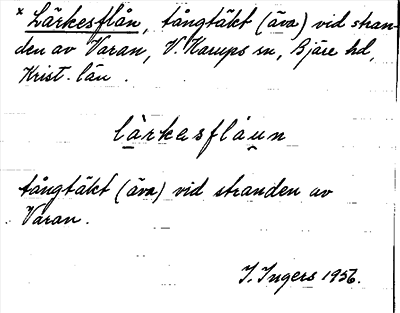 × Lärkesflån, tångtäkt (äva) vid stran-
den av Varan, V. Karups sn, Bjäre hd,
Krist. län.
lärkesflaun
tångtäkt (äva) vid stranden av
Varan.
I. Ingers 1956.